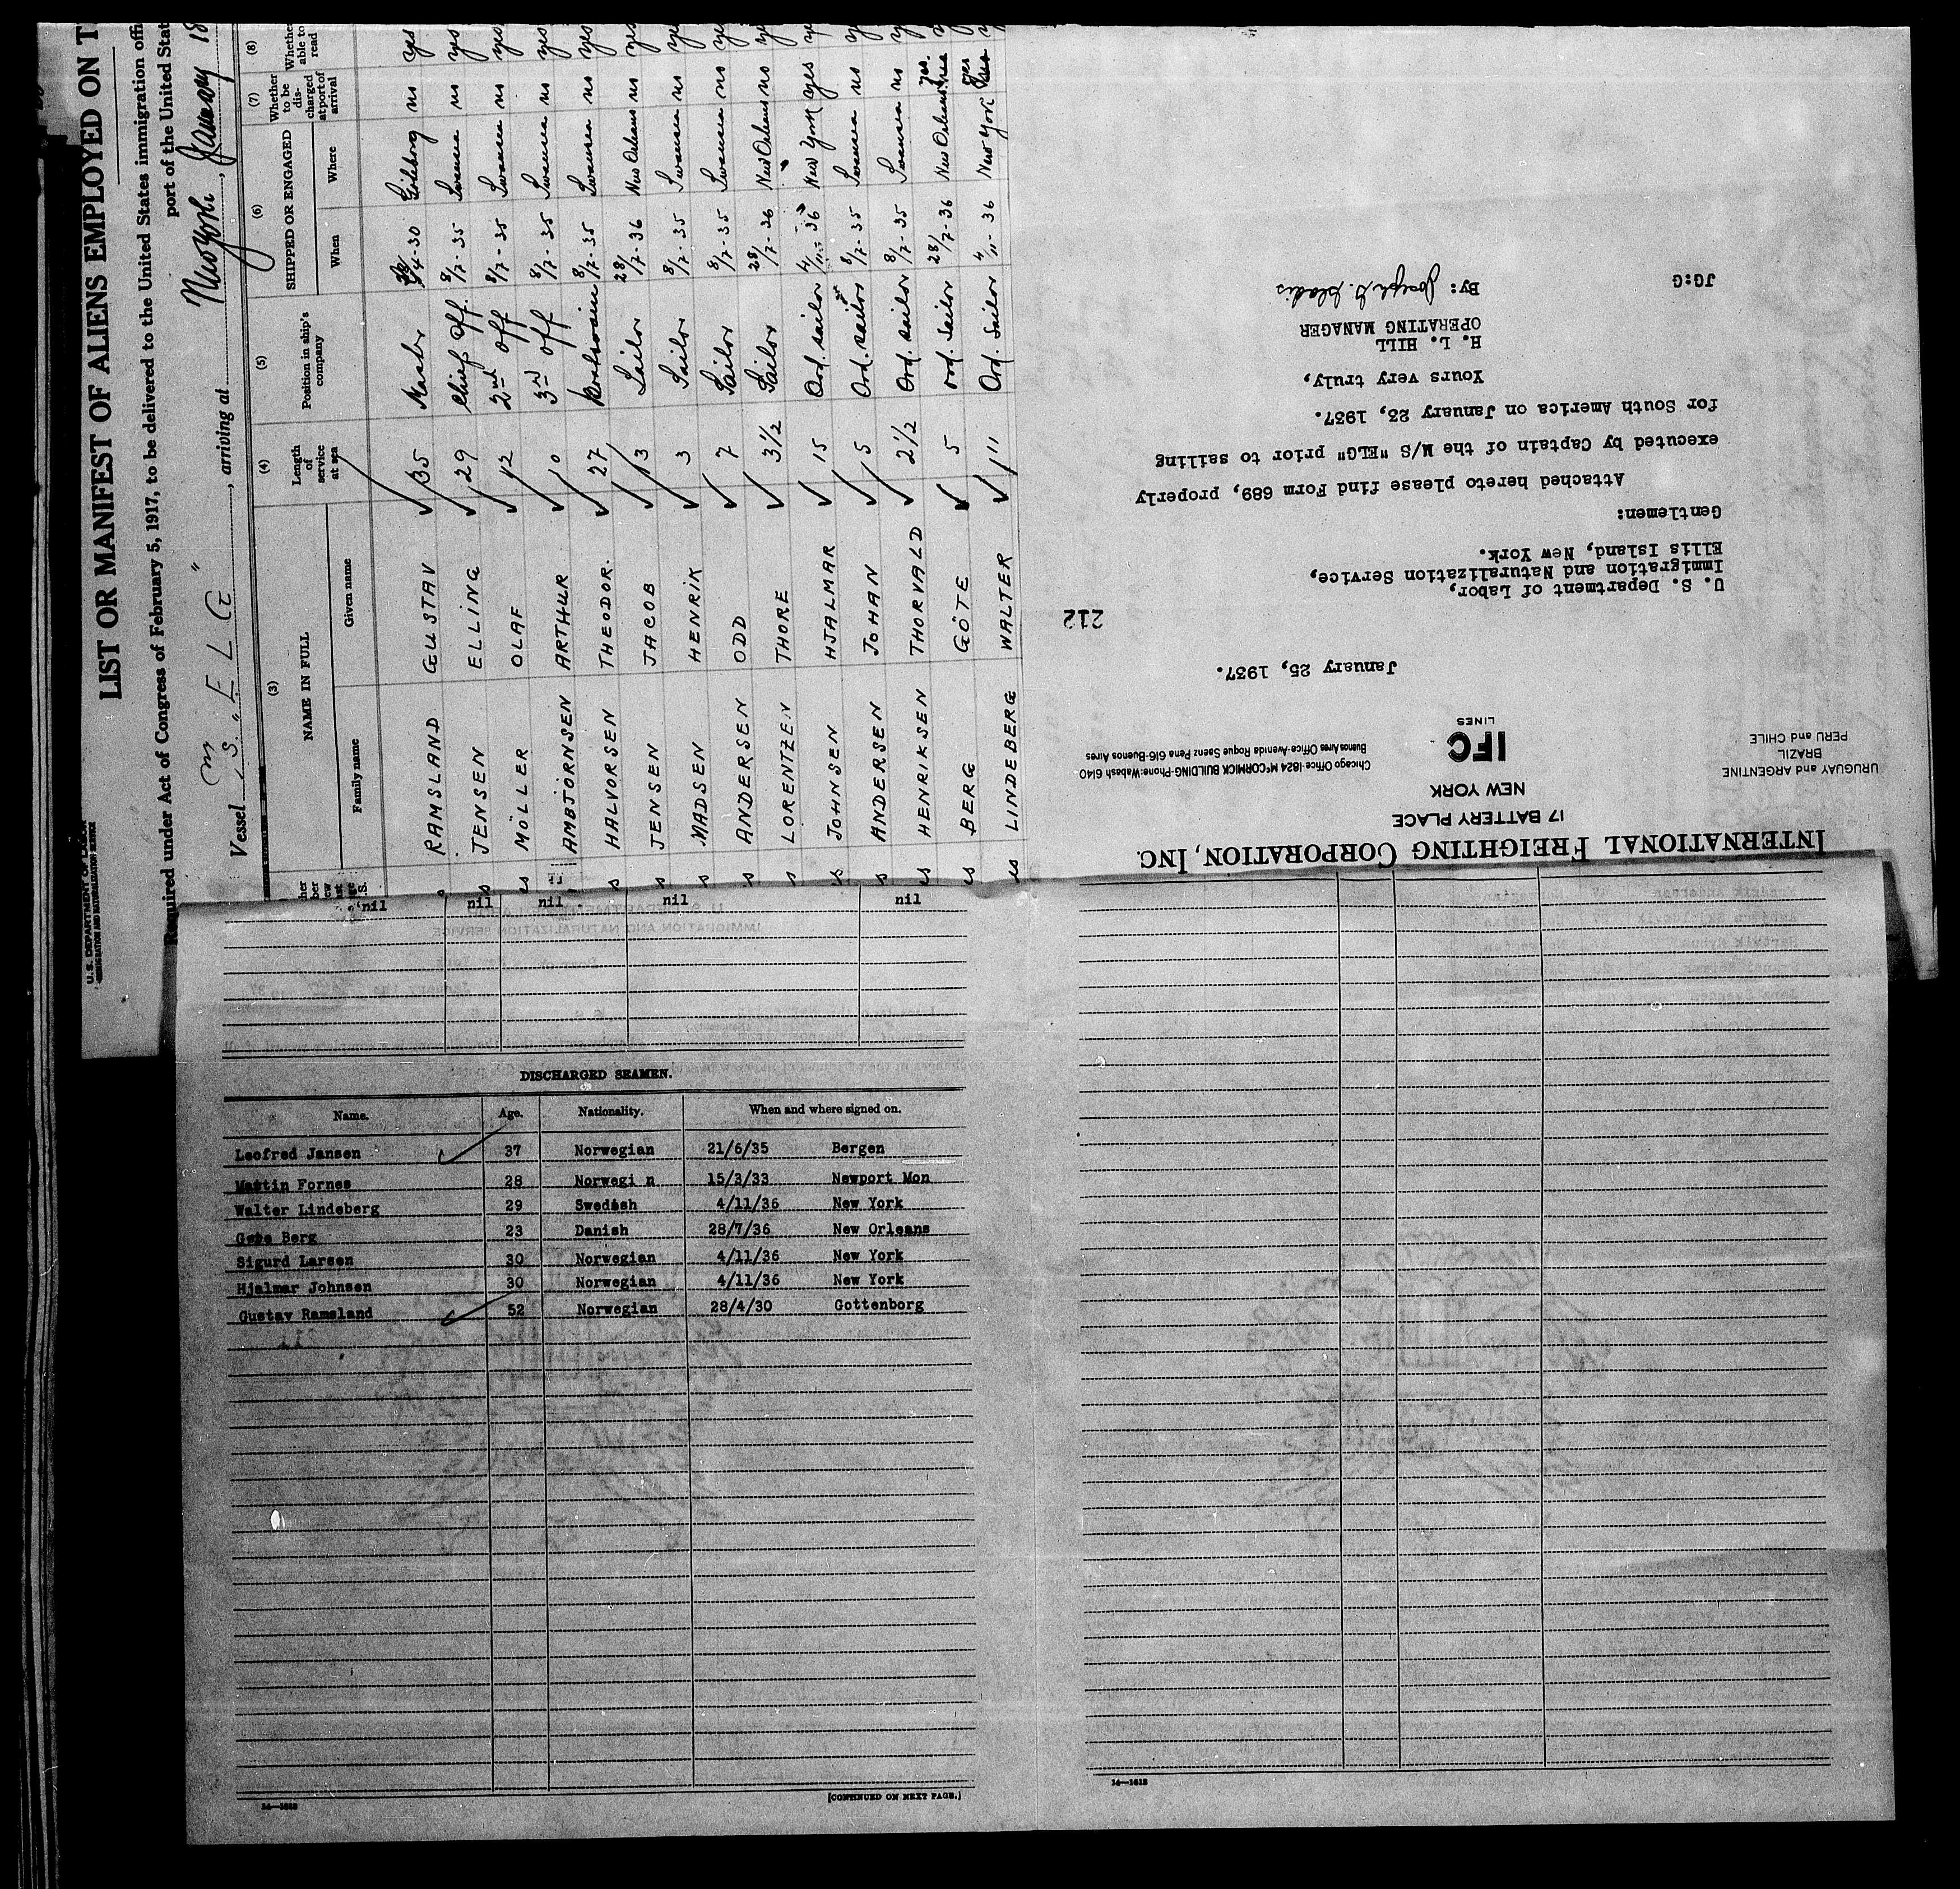 U.S. DEPARTMENT OF LABOR
IMMIGRATION AND NATURALIZATION SERVICE
LIST OR MANIFEST OF ALIENS EMPLOYED ON T
Required under Act of Congress of February 5, 1917, to be delivered to the United States immigration offi
port of the United Stat
Vessel M/S. "ELG", arriving at New York, January 18
(3) (4) (5) (6) (7) (8)
NAME IN FULL Length of service at sea Position in ship's company SHIPPED OR ENGAGED Whether to be discharged at port of arrival Whether able to read
Family name Given name When Where
RAMSLAND GUSTAV 35 Master 28/4-30 Göteborg no yes
JENSEN ELLING 29 Chief Off 8/7-35 Swansea no yes
MÖLLER OLAF 12 2nd Off 8/7-35 Swansea no yes
AMBJÖRNSEN ARTHUR 10 3rd Off 8/7-35 Swansea no yes
HALVORSEN THEODOR. 27 Boatswain 8/7-35 Swansea no yes
JENSEN JACOB 13 Sailor 28/7-36 New Orleans no yes
MADSEN HENRIK 3 Sailor 8/7-35 Swansea no ye
ANDERSEN ODD 7 Sailor 8/7-35 Swansea no ye
LORENTZEN THORE 3½ Sailor 28/7-36 New Orleans no ye
JOHNSEN HJALMAR 15 Ord. sailor 4/11-36 New York yes ye
ANDERSEN JOHAN 5 Ord. sailor 8/7-35 Swansea no ye
HENRIKSEN THORVALD 2½ Ord. sailor 8/7-35 Swansea no y
BERG GÖTE 5 ord. sailor 28/7-36 New Orleans yes y
LINDEBERG WALTER 11 Ord. sailor 4/11-36 New York yes y
INTERNATIONAL FREIGHTING CORPORATION, INC.
17 BATTERY PLACE
NEW YORK
URUGUAY and ARGENTINE
BRAZIL
PERU and CHILE
IFC
LINES
Chicago Office-1824 McCORMICK BUILDING-Phone:Wabash 6140
Buenos Aires Office-Avenida Roque Saenz Pena 616-Buenos Aires
January 25, 1937.
212
U. S. Department of Labor,
Immigration and Naturalization Service,
Ellis Island, New York.
Gentlemen:
Attached hereto please find Form 689, properly
executed by Captain of the M/S "ELG" prior to sailing
for South America on January 23, 1937.
Yours very truly,
H. L. HILL
OPERATING MANAGER
By: Joseph G. Gladis
JG:G
nil nil nil nil nil
DISCHARGED SEAMEN.
Name. Age. Nationality. When and where signed on.
Leofred Jansen 37 Norwegian 21/6/35 Bergen
Martin Fornes 28 Norwegi n 15/3/33 Newport Mon
Walter Lindeberg 29 Swedish 4/11/36 New York
Gote Berg 23 Danish 28/7/36 New Orleans
Sigurd Larsen 30 Norwegian 4/11/36 New York
Hjalmar Johnsen 30 Norwegian 4/11/36 New York
Gustav Ramsland 52 Norwegian 28/4/30 Gottenborg
14—1613
[CONTINUED ON NEXT PAGE.]
14—1613